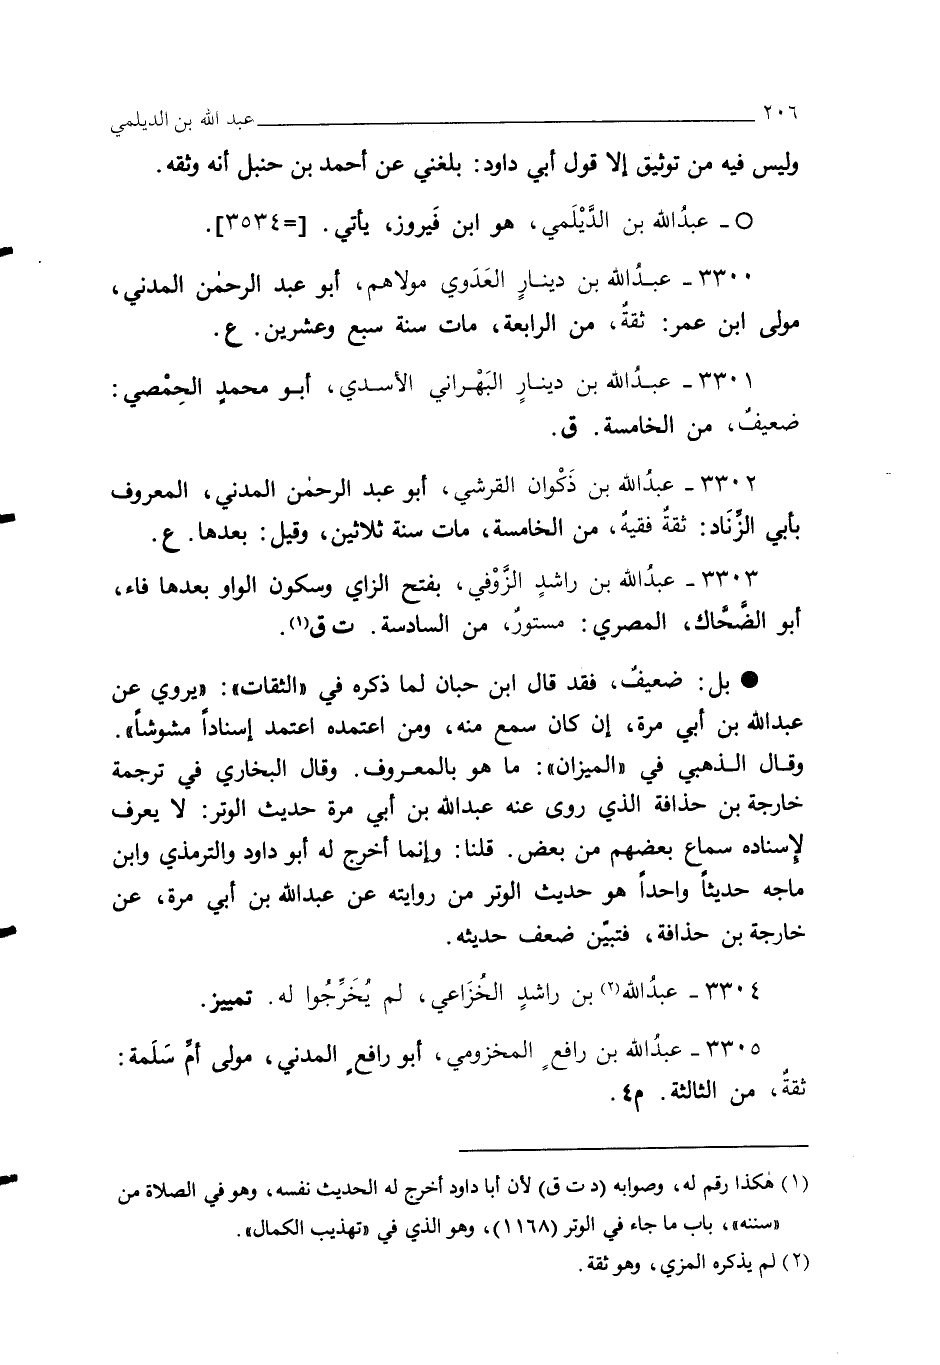 ٢٠٦ عبد الله بن الديلمي
وليس فيه من توثيق إلا قول أبي داود: بلغني عن أحمد بن حنبل أنه وثقه.
○ ـ عبدُالله بن الدَّيْلَمي، هو ابن فَيروز، يأتي. [=٣٥٣٤].
٣٣٠٠ ـ عبدُالله بن دينارٍ العَدَوي مولاهم، أبو عبد الرحمٰن المدني،
مولى ابن عمر: ثقةٌ، من الرابعة، مات سنة سبع وعشرين. ع.
٣٣٠١ ـ عبدُالله بن دينارٍ البَهْراني الأسدي، أبو محمدٍ الحِمْصي:
ضعيفٌ، من الخامسة. ق.
٣٣٠٢ ـ عبدُالله بن ذَكْوان القرشي، أبو عبد الرحمٰن المدني، المعروف
بأبي الزِّنَاد: ثقةٌ فقيهٌ، من الخامسة، مات سنة ثلاثين، وقيل: بعدها. ع.
٣٣٠٣ ـ عبدُالله بن راشدٍ الزَّوْفي، بفتح الزاي وسكون الواو بعدها فاء،
أبو الضَّحَّاك، المصري: مستورٌ، من السادسة. ت ق(١).
● بل: ضعيفٌ، فقد قال ابن حبان لما ذكره في «الثقات»: «يروي عن
عبدالله بن أبي مرة، إن كان سمع منه، ومن اعتمده اعتمد إسناداً مشوشاً».
وقال الذهبي في «الميزان»: ما هو بالمعروف. وقال البخاري في ترجمة
خارجة بن حذافة الذي روى عنه عبدالله بن أبي مرة حديث الوتر: لا يعرف
لإسناده سماع بعضهم من بعض. قلنا: وإنما أخرج له أبو داود والترمذي وابن
ماجه حديثاً واحداً هو حديث الوتر من روايته عن عبدالله بن أبي مرة، عن
خارجة بن حذافة، فتبيّن ضعف حديثه.
٣٣٠٤ ـ عبدُالله(٢) بن راشدٍ الخُزَاعي، لم يُخَرِّجُوا له. تمييز.
٣٣٠٥ ـ عبدُالله بن رافعٍ المخزومي، أبو رافعٍ المدني، مولى أمِّ سَلَمة:
ثقةٌ، من الثالثة. م٤.
(١) هٰكذا رقم له، وصوابه (د ت ق) لأن أبا داود أخرج له الحديث نفسه، وهو في الصلاة من
«سننه»، باب ما جاء في الوتر (١١٦٨)، وهو الذي في «تهذيب الكمال».
(٢) لم يذكره المزي، وهو ثقة.